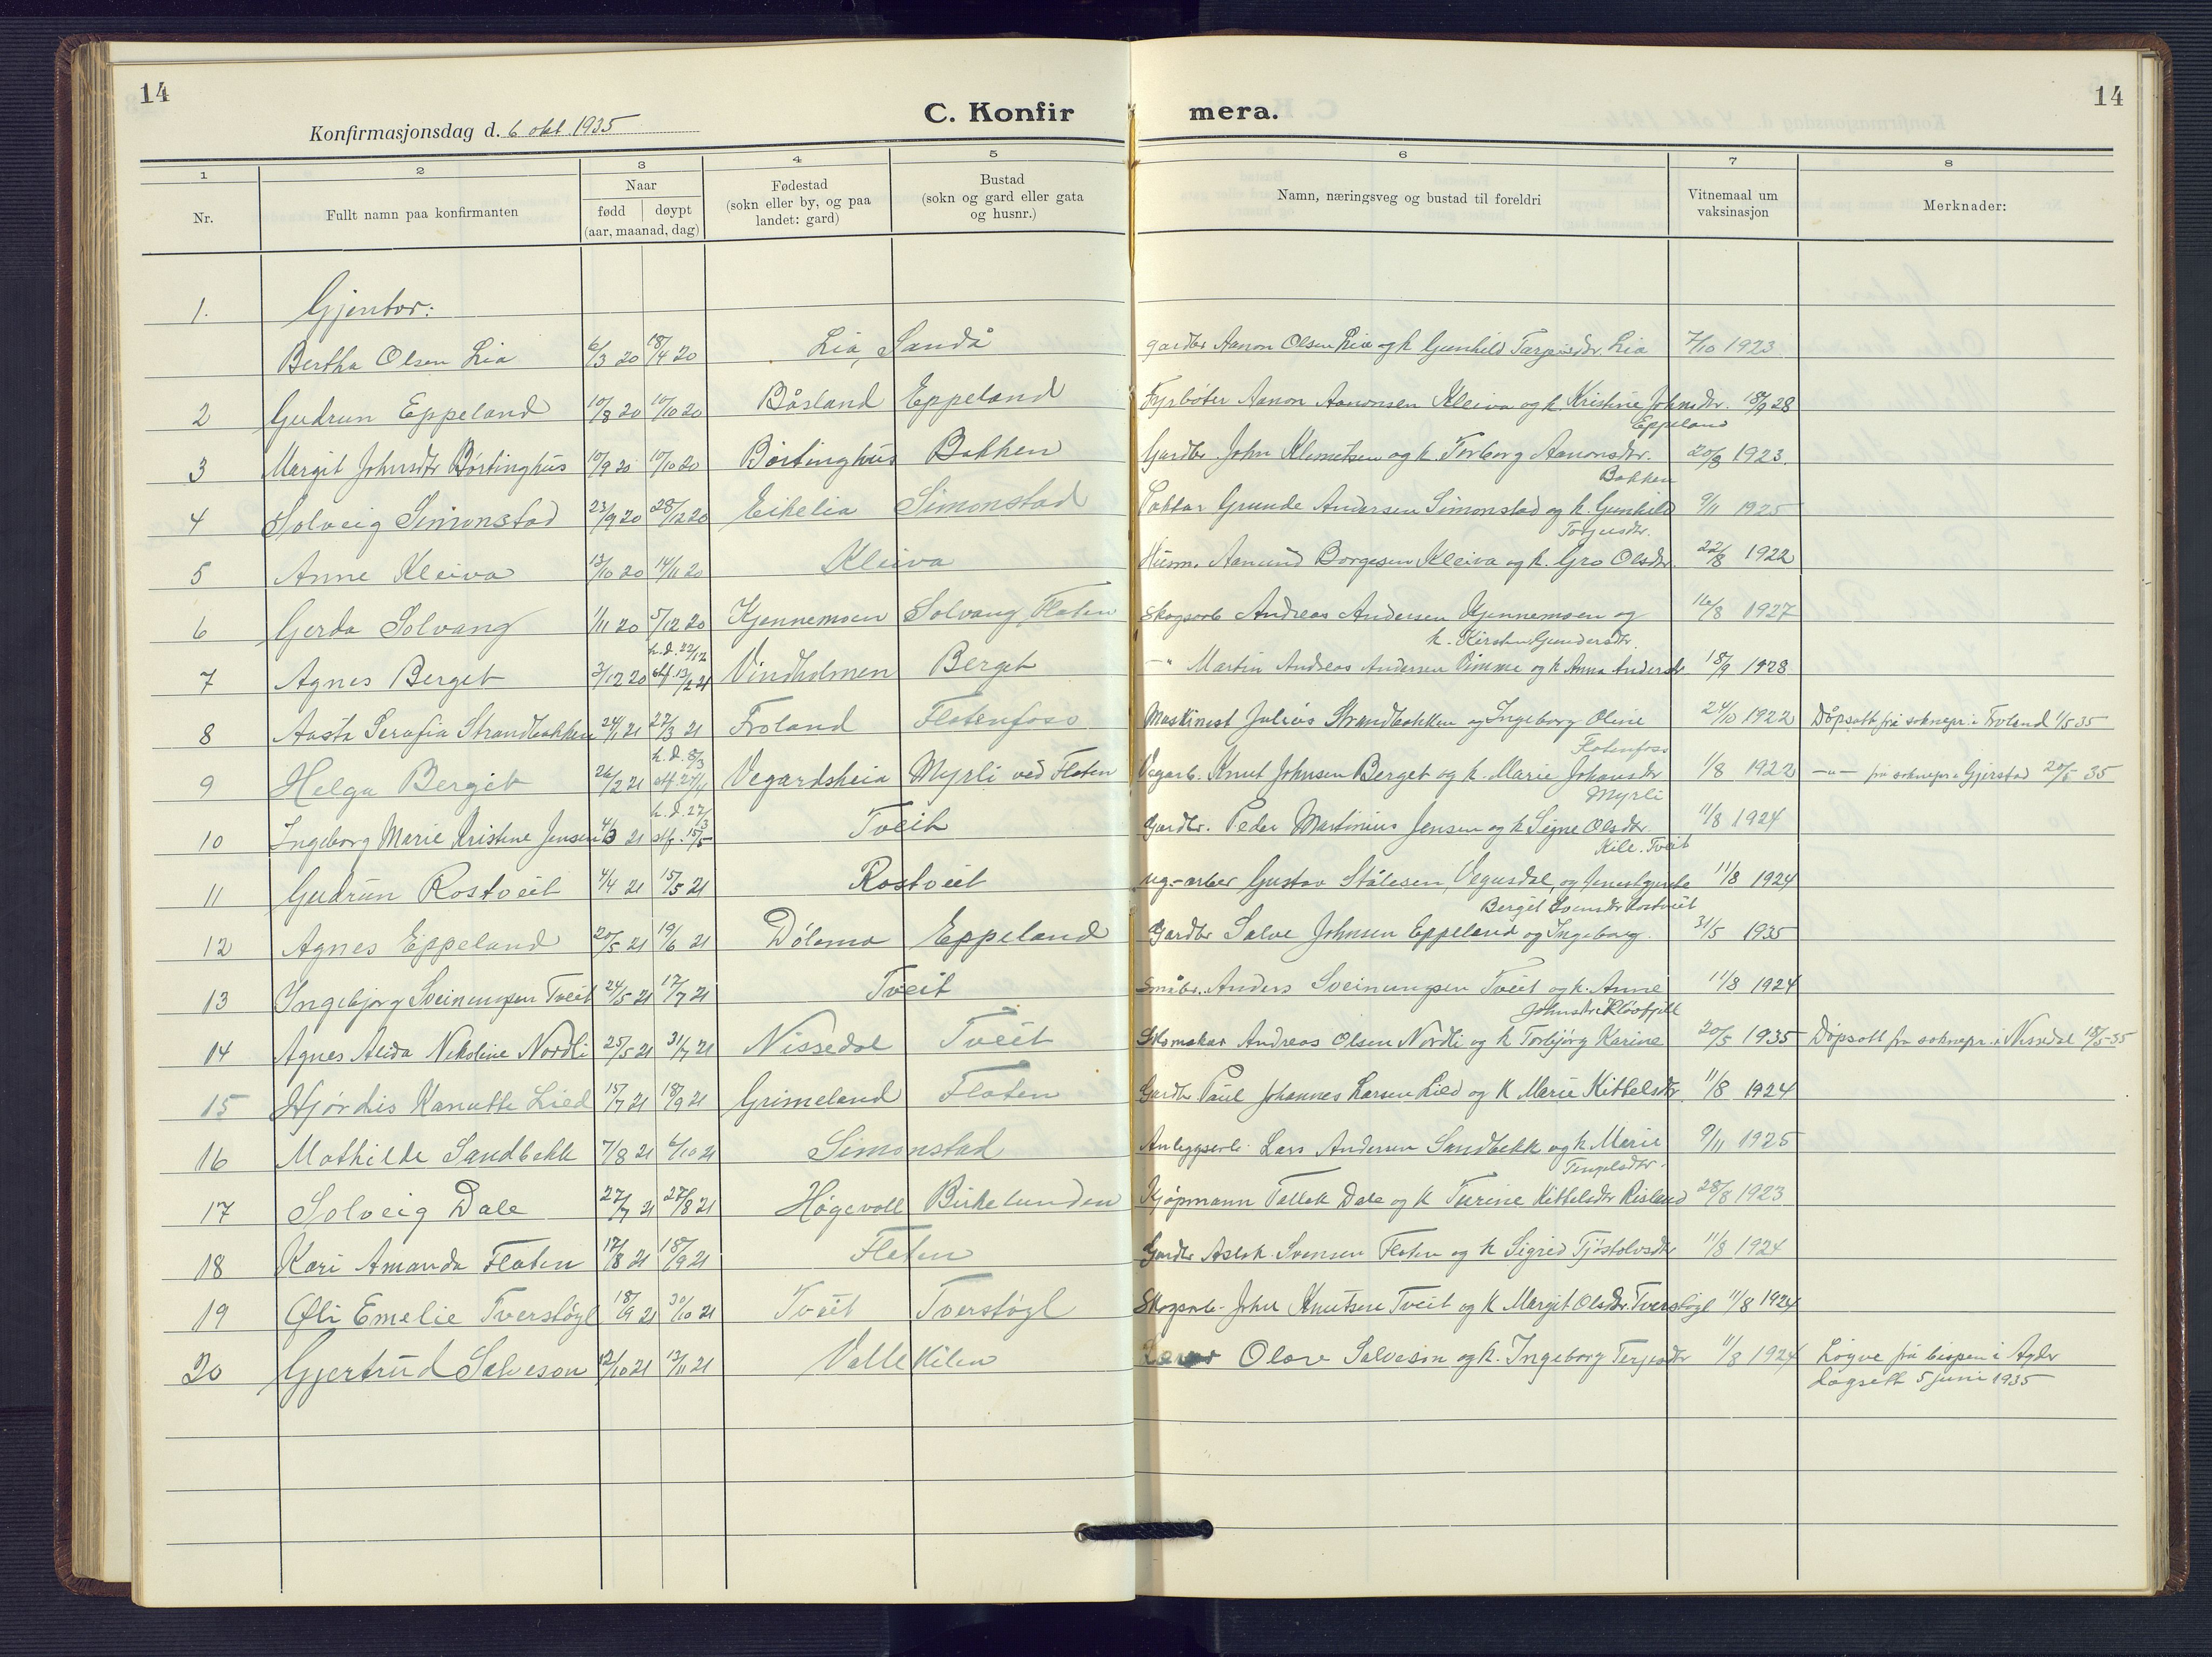 14
C. Konfir mera.
14
Konfirmasjonsdag d. 6 okt. 1935
1 2 3 4 5 6 7 8
Nr.
Fullt namn paa konfirmanten
Naar
fødd døypt
(aar, maanad, dag)
Fødestad
(sokn eller by, og paa
landet: gard)
Bustad
(sokn og gard eller gata
og husnr.)
Namn, næringsveg og bustad til foreldri
Vitnemaal um
vaksinasjon
Merknader:
1. Gjentor:
Bertha Olsen Lia 6/3 20 18/4 20 Lia, Sandå gardbr Aanon Olsen Lia og k Gunhild Lia 7/10 1923
2 Gudrun Eppeland 10/8 20 10/10 20 Båsland Eppeland Fyrbøter Aanon Aanonsen Kleiva og k. Kristine Johnsdtr. 18/9 28
Eppeland
3 Margit Johnsdtr Børtinghus 10/9 20 10/10 20 Børtinghus Bakken Gardbr. John Klemetsen og k. Torborg Aanonsdtr. 20/8 1923.
Bakken
4 Solveig Simonstad 23/9 20 28/12 20 Eikelia Simonstad Paktar Grunde Andersen Simonstad og k. Gunhild 9/11 1925
Torjusdtr.
5 Anne Kleiva 13/10 20 14/11 20 Kleiva Husm. Aanund Borgesen Kleiva og k. Gro Olsdtr. 22/8 1922
6 Gerda Solvang 1/11 20 5/12 20 Kjennemoen Solvang, Flaten Skogsarb Andreas Andersen Kjennemoen og 16/8 1927
k. Kirsten Gundersdtr.
7 Agnes Berget 3/12 20 h.d. 22/12 stf. 13/2 21 Vindholmen Berget —" Martin Andreas Andersen Rimme og k Anna Andersdtr 18/9 1928
8 Aasta Serafia Strandbakken 24/1 21 27/3 21 Froland Flatenfoss Maskinist Julius Strandbakken og Ingeborg Oline 24/10 1922 Dåpsatt frå soknepr. i Froland 1/5 35
Flatenfoss
9 Helga Berget 26/2 21 h.d. 8/3 stf. 27/4 Vegardsheia Myrli ved Flaten Vegarb. Knut Johnsen Berget og k. Marie Johansdtr 1/8 1922 —"— frå soknepr. i Gjerstad 20/5 35
Myrli
10 Ingeborg Marie Kristine Jensen 4/3 21 h.d. 27/3 stf. 15/5 Tveit Gardbr. Peder Martinius Jensen og k Signe Olsdtr. 11/8 1924
Kile. Tveit
11 Gudrun Rostveit 4/4 21 15/5 21 Rostveit Gustav Stålesen, Vegusdal, og 11/8 1924
Berget Svensdtr Rostveit
12 Agnes Eppeland 20/5 21 19/6 21 Dølemo Eppeland Gardbr Salve Johnsen Eppeland og Ingeborg. 31/5 1935
13 Ingebjørg Sveinungsen Tveit 24/5 21 17/7 21 Tveit Småbr. Anders Sveinungsen Tveit og k. Anne 11/8 1924
Johnsdtr Kløvfjell
14 Agnes Alida Nikoline Nordli 25/5 21 31/7 21 Nissedal Tveit Skomakar Andreas Olsen Nordli og k Torbjørg Karine 20/5 1935 Dåpsatt fra soknepr. i Nissedal 18/5-35
15 Hjørdis Kanutte Lied 15/7 21 18/9 21 Grimeland Flaten Gardbr Paul Johannes Larsen Lied og k Marie Kittelsdtr. 11/8 1924
16 Mathilde Sandbekk 7/8 21 6/10 21 Simonstad Anleggsarb. Lars Andersen Sandbekk og k Marie 9/11 1925
Tengelsdtr.
17 Solveig Dale 27/7 21 27/8 21 Høgevoll Birkelunden Kjøpmann Tallak Dale og k Turine Kittelsdtr Risland 28/8 1923
18 Kari Amanda Flaten 17/8 21 18/9 21 Flaten Gardbr Aslak Svensen Flaten og k Sigrid Tjøstolvsdtr 11/8 1924
19 Øli Emelie Tverstøyl 18/9 21 30/10 21 Tveit Tverstøyl Skogsarb. John Knutsen Tveit og k Margit Olsdtr. Tverstøyl 11/8 1924
20 Gjertrud Salveson 12/10 21 13/11 21 Valle Kilen Olav Salveson og k. Ingeborg Terjesdtr 11/8 1924 Løyve frå bispen i Agder
dagsett 5 juni 1935